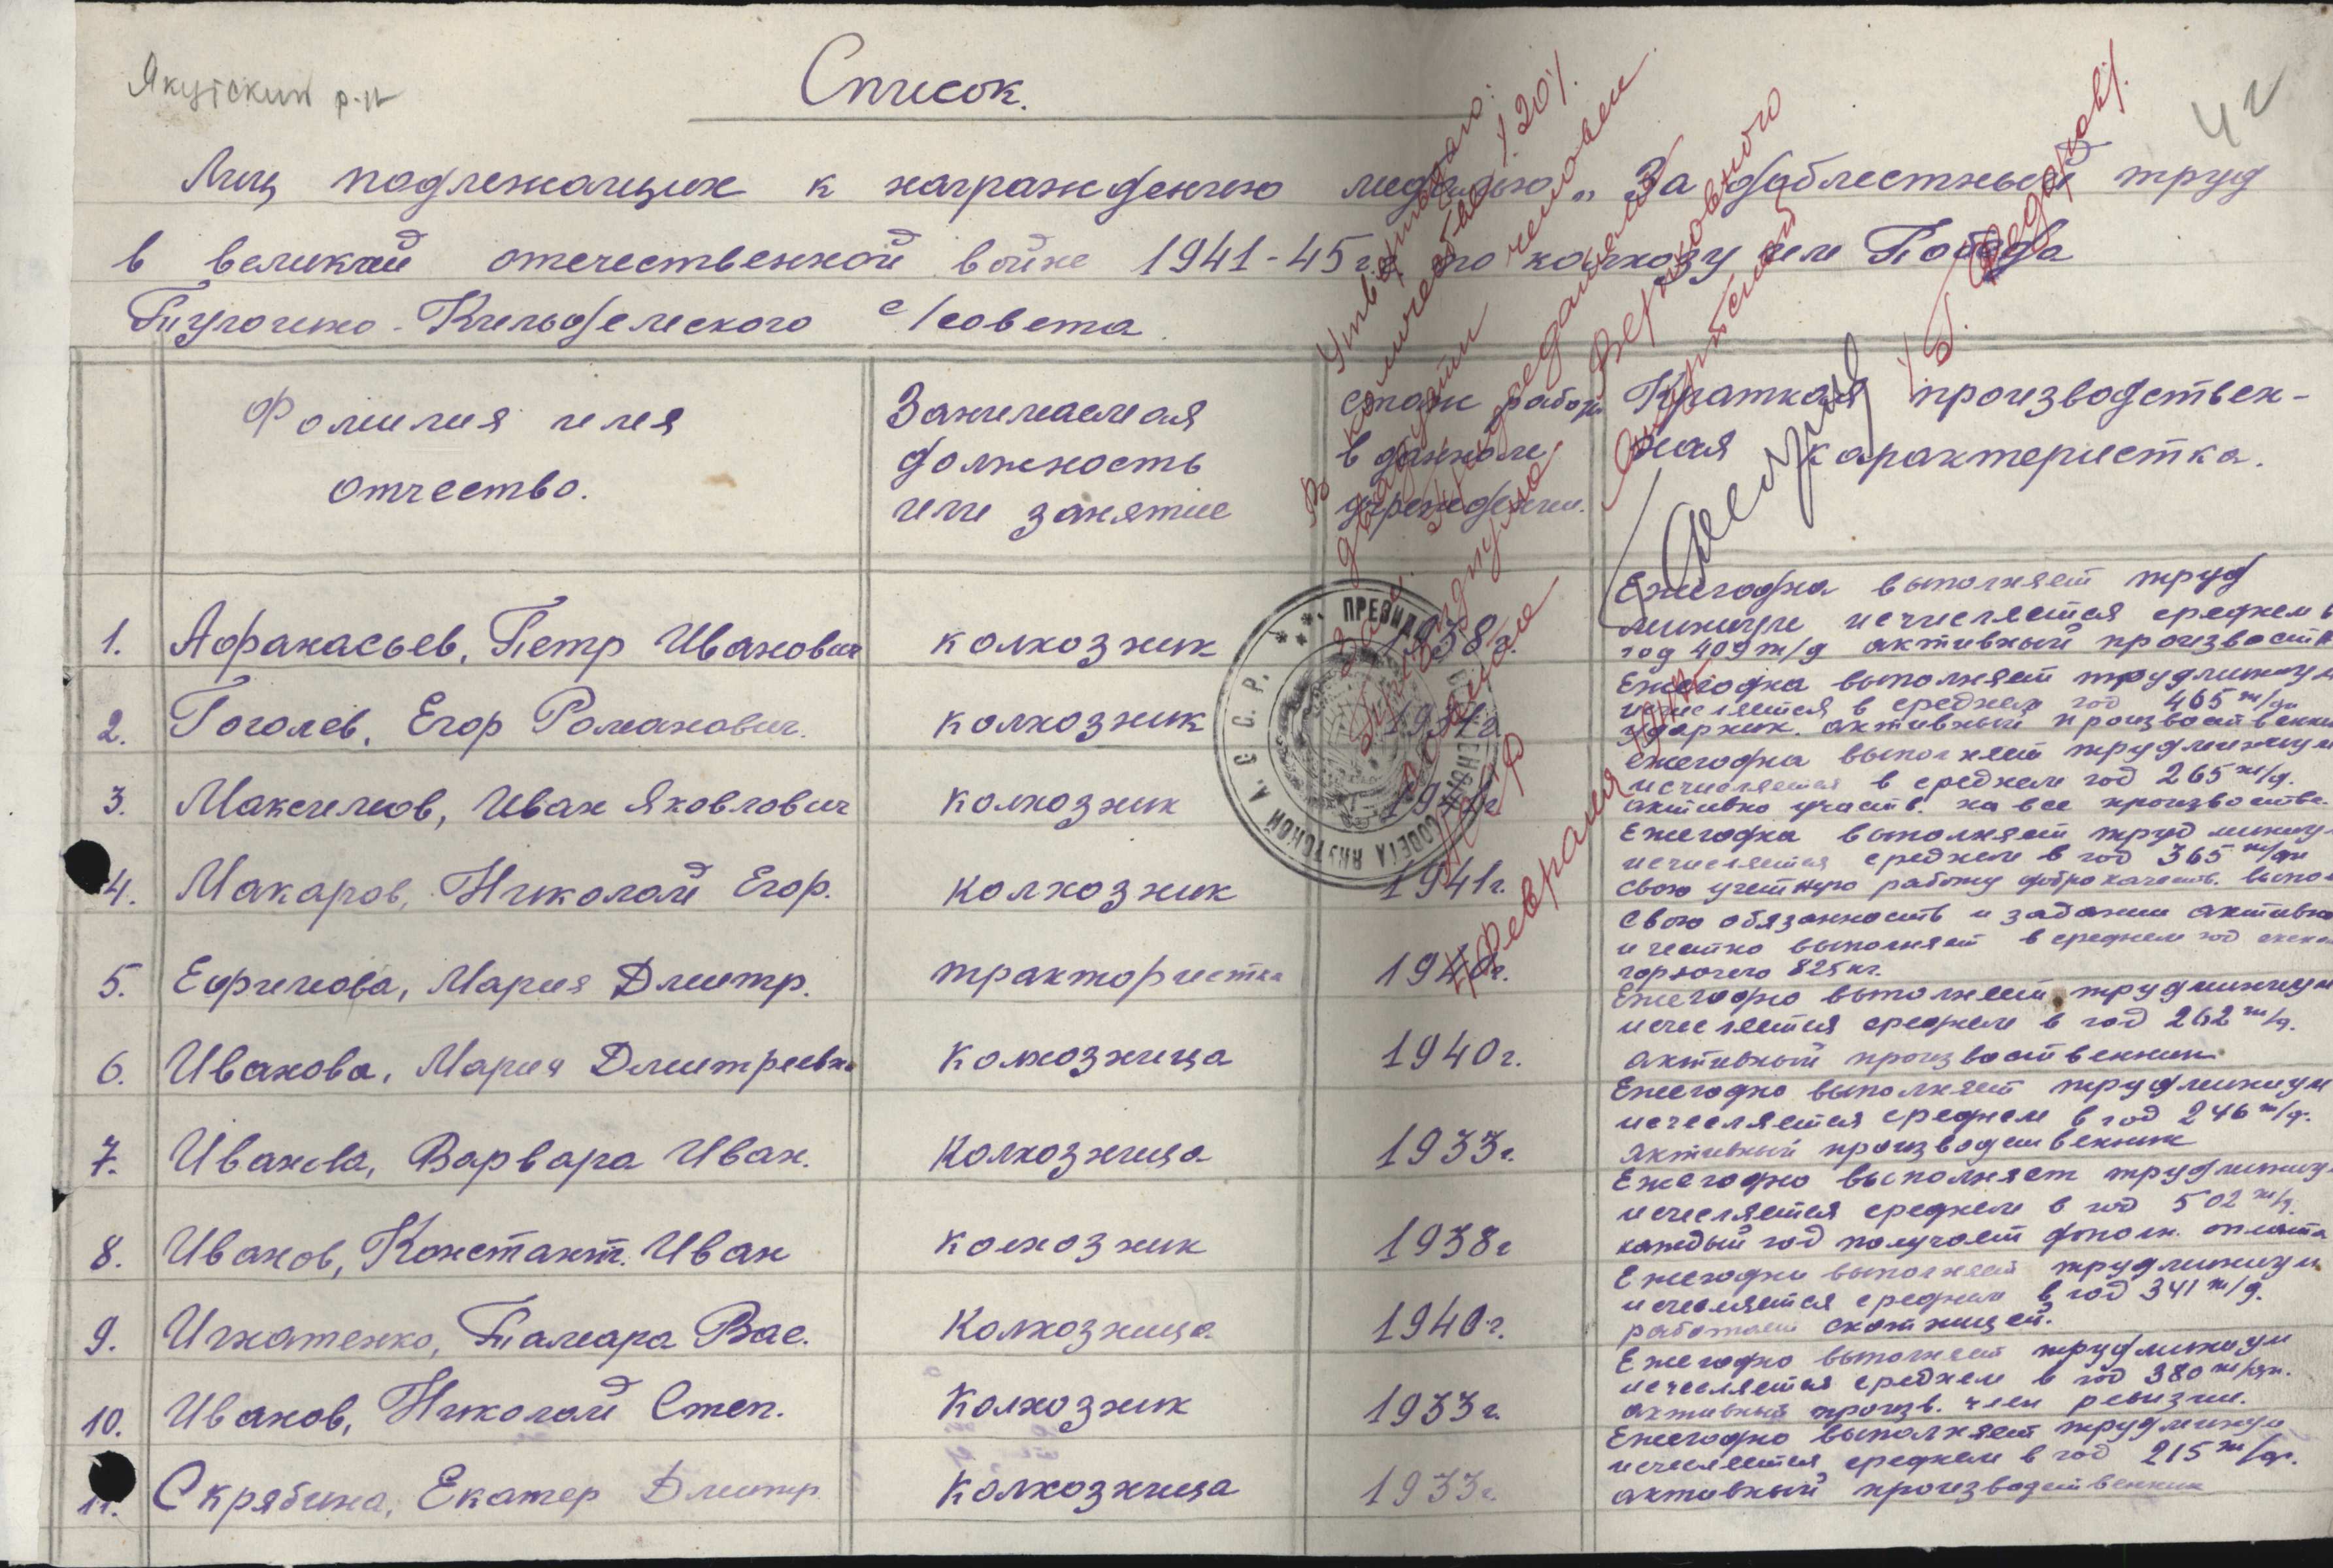 Якутский р-н
Список.
42
Лиц подлежащих к награждению медалью „За доблестный труд
в великой отечественной войне 1941-45 г.г. по колхозу им Победа
Тулагино-Кильдемского с/совета.
Утверждаю:
в количестве /20/.
двадцати человек
Зам. Председателя
Президиума Верховного
Совета Якутской
АССР
/Г. Федорова/.
4 февраля 1947
Фамилия имя
отчество.
Занимаемая
должность
или занятие
стаж работы
в данном
учреждении.
Краткая производствен-
ная характеристка.
1. Афанасьев, Петр Иванович колхозник 1938 г.
Ежегодна выполняет труд
минимум исчисляется среднем в
год 409 т/д активный произвост
2. Гоголев, Егор Романович. колхозник
Ежегодна выполняет трудминиму
исчисляется в среднем год 465 т/дн
ударник. активный произвоственни
3. Максимов, Иван Яковлович колхозник
ежегодна выполняет трудминиму
исчисляется в среднем год 265 т/д.
активно участв. на все произвостве.
4. Макаров, Николай Егор. колхозник 1941 г.
Ежегодна выполняет труд миниму
исчисляется среднем в год 365 т/дн
свою учетную работу доброкачеств. выпо
5. Ефимова, Мария Дмитр. трактористка 1940 г.
Свою обязанность и задании активно
и честно выполняет в среднем год
горючего 825 кг.
6. Иванова, Мария Дмитриевна колхозница 1940 г.
Ежегодно выполняет трудминиум
исчесляется среднем в год 262 т/д.
активный произвоственник
7. Иванова, Варвара Иван. колхозница 1933 г.
Ежегодно выполняет трудминиум
исчесляется среднем в год 246 т/д.
Активный производственник
8. Иванов, Константин. Иван колхозник 1938 г
Ежегодно высполняет трудминиу
исчесляется среднем в год 502 т/д.
каждый год получает дополн. оплата
9. Игнатенко, Тамара Вас. колхозница 1940 г.
Ежегодни выполняет трудминиум
исчесляется среднем в год 341 т/д.
работает скотницей.
10. Иванов, Николай Степ. колхозник 1933 г.
Ежегодно выполняет трудминиум
исчесляется среднем в год 380 т/дн.
активный произв. член ревизии.
11. Скрябина, Екатер Дмитр. колхозница 1933 г.
Ежегодно выполняет трудминиу
исчесляется среднем в год 215 т/дн.
активный производственник